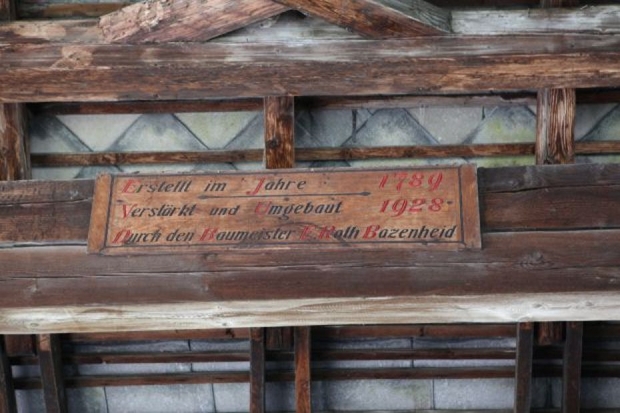 Erstellt im Jahre 1789
Verstärkt und Umgebaut 1928
Durch den Baumeister E. Rath Bazenheid